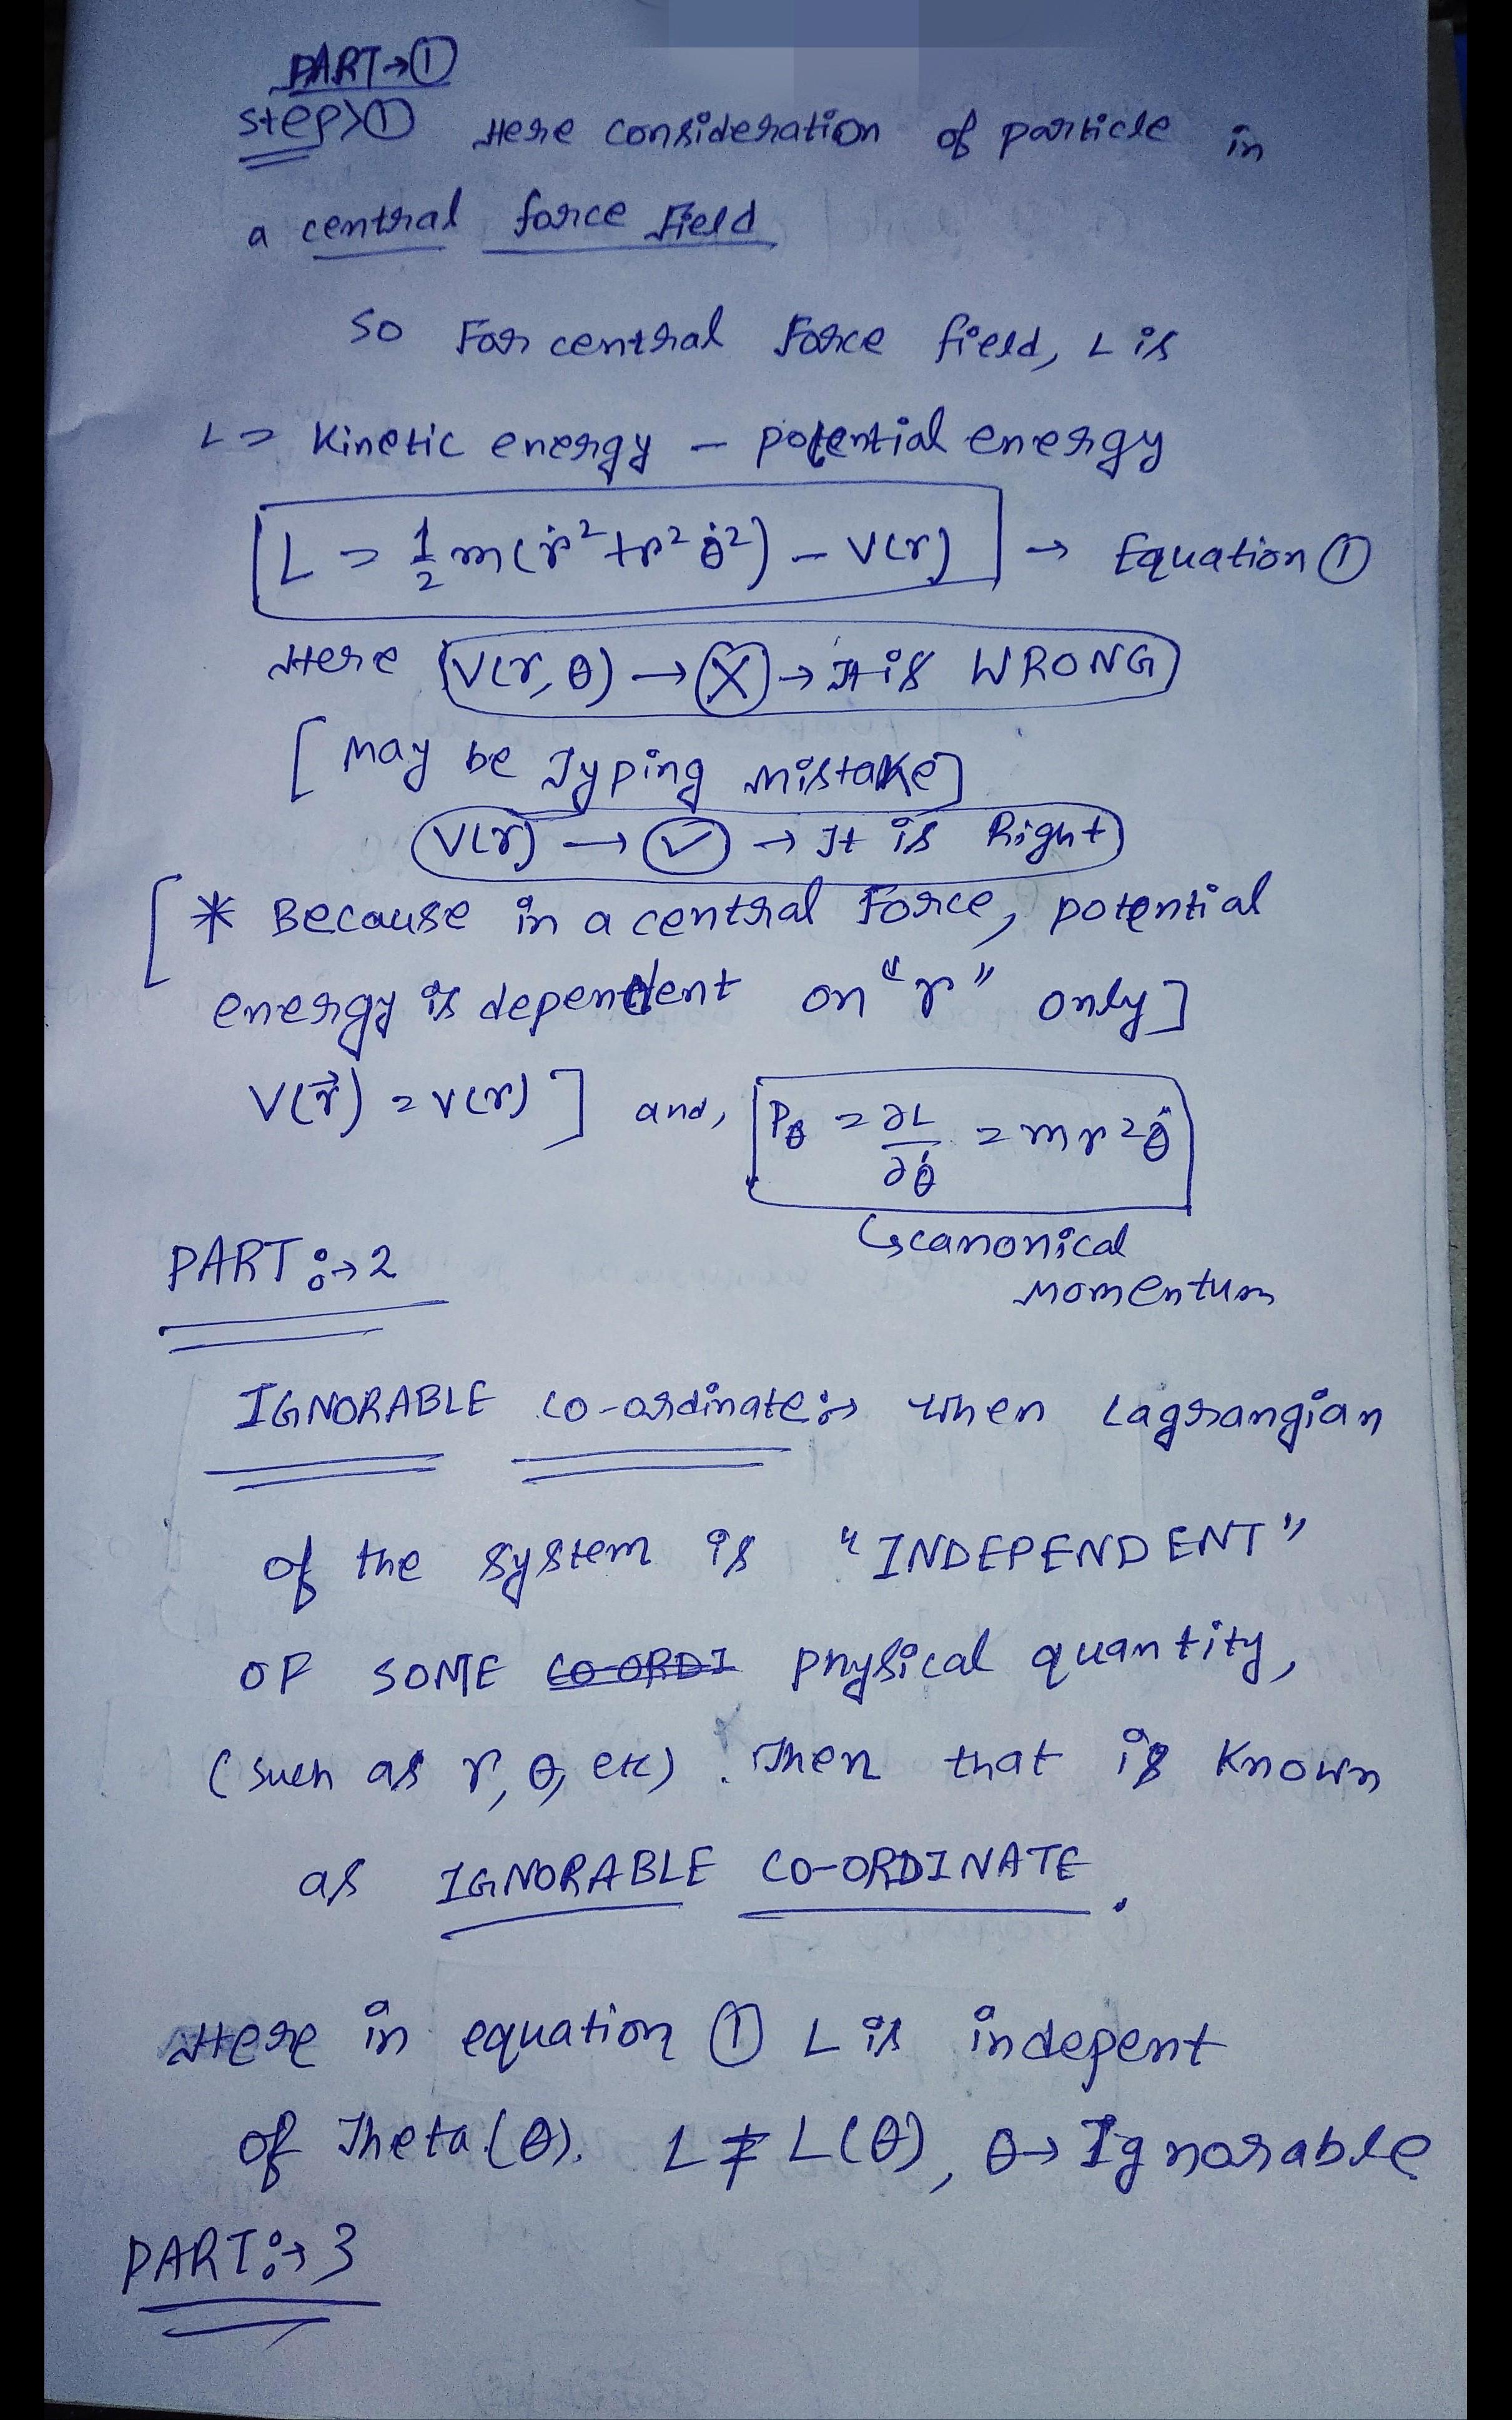 PART→①
step>① Here consideration of particle in
a central force Field
So For central force field, L is
L = Kinetic energy - potential energy
L = 1/2 m(ṙ²+r²θ̇²) - V(r) → Equation ①
Here V(r,θ) → ⓧ → It is WRONG
[May be Typing mistake]
V(r) → ✓ → It is Right
[* Because in a central Force, potential
energy is dependent on "r" only]
V(r⃗) = V(r)] and, Pθ = ∂L/∂θ̇ = mr²θ̇
↳canonical
Momentum
PART:→2
IGNORABLE co-ordinate:→ when Lagrangian
of the system is "INDEPENDENT"
OF SOME CO-ORDI physical quantity,
(such as r, θ, etc). Then that is known
as IGNORABLE CO-ORDINATE.
Here in equation ① L is indepent
of Theta(θ). L ≠ L(θ), θ→ Ignorable
PART:→3